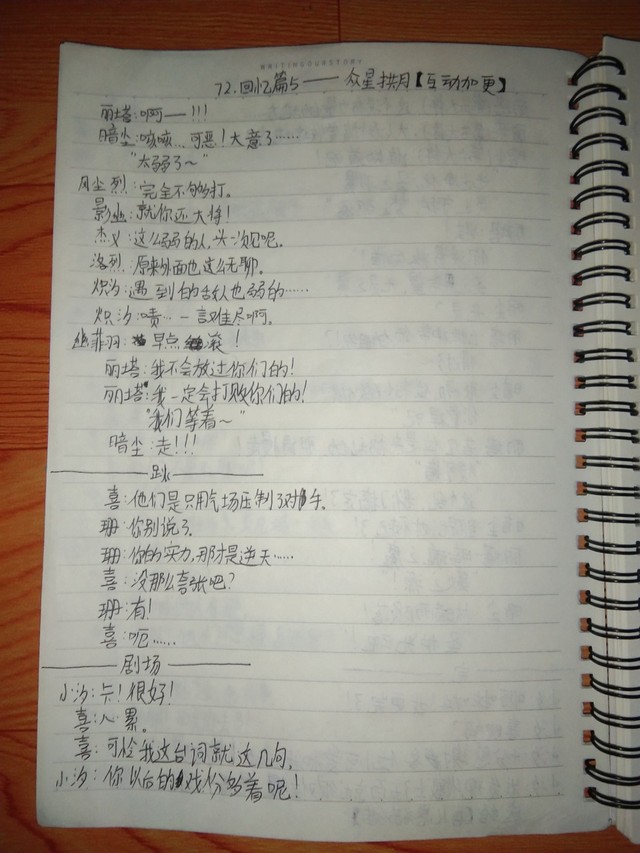 72.回忆篇5——众星拱月【互动加更】
丽塔:啊——!!!
暗尘:咳咳…可恶!大意了……
"太弱了~"
风尘烈:完全不够打。
影幽:就你还大将!
杰义:这么弱的人,头一次见呢。
洛烈:原来外面也这么无聊。
炽汐:遇到的敌人也弱的……
炽汐:啧…一言难尽啊。
幽菲羽:早点滚!
丽塔:我不会放过你们的!
丽塔:我一定会打败你们的!
"我们等着~"
暗尘:走!!!
跳
喜:他们是只用气场压制了对手。
珊:你别说了。
珊:你的实力,那才是逆天……
喜:没那么夸张吧?
珊:有!
喜:呃……
剧场
小汐:卡!很好!
喜:心累。
喜:可怜我这台词就这几句。
小汐:你以后的戏份多着呢!